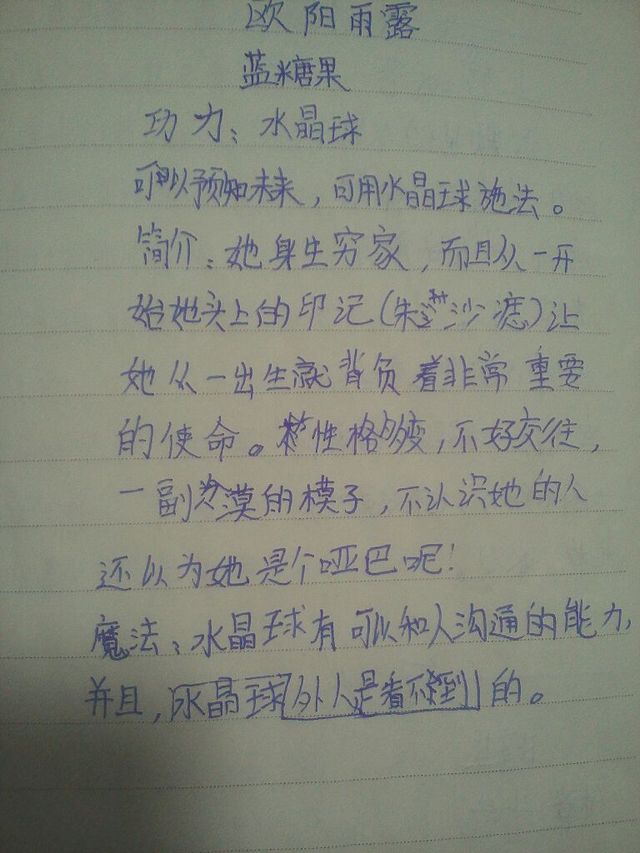 欧阳雨露
蓝糖果
功力：水晶球
可以预知未来，可用水晶球施法。
简介：她身生穷家，而且从一开
始她头上的印记（朱沙痣）让
她从一出生就背负着非常重要
的使命。性格多变，不好交往，
一副冷漠的模子，不认识她的人
还以为她是个哑巴呢！
魔法：水晶球有可以和人沟通的能力，
并且，水晶球外人是看不到的。